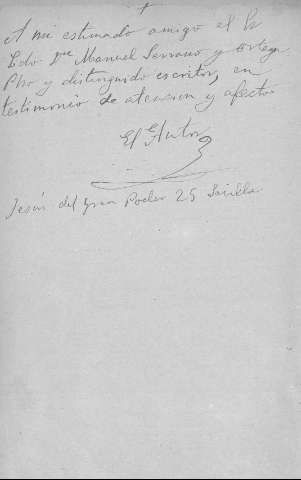 A mi estimado amigo el Sr
Ldo Dn Manuel Serrano y Ortega
Pbo y distinguido escritor, en
testimonio de atencion y afecto
El Autor
Jesús del Gran Poder 25 Sevilla